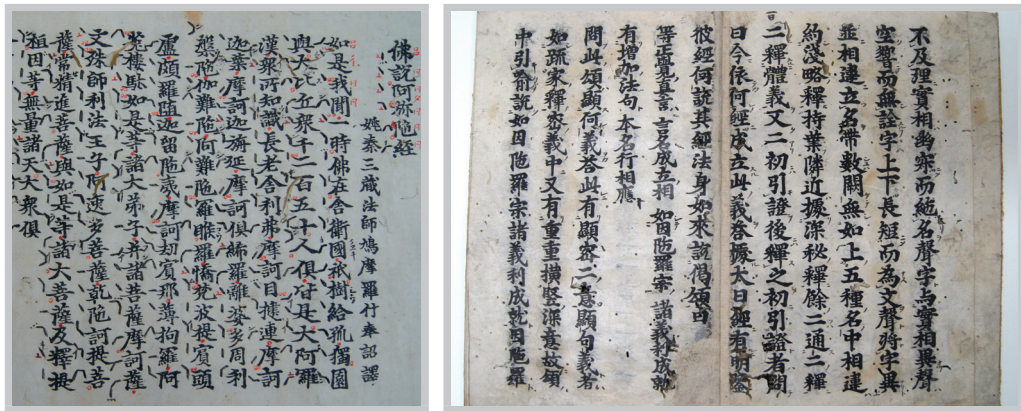 佛説阿弥陁経
姚秦三蔵法師鳩摩羅什奉詔譯
如是我聞一時佛在舎衛國祇樹給孤獨園
與大比丘衆千二百五十人俱皆是大阿羅
漢衆所知識長老舎利弗摩訶目揵連摩訶
迦葉摩訶迦旃延摩訶俱絺羅離婆多周利
槃陁伽難陁阿難陁羅睺羅憍梵波提賓頭
盧頗羅堕迦留陁夷摩訶劫賓那薄拘羅阿
㝹樓馱如是等諸大弟子并諸菩薩摩訶薩
文殊師利法王子阿逸多菩薩乾陁訶提菩
薩常精進菩薩與如是等諸大菩薩及釋提
桓因等無量諸天大衆俱
不及理實相幽寂而絶名聲字与實相異聲
空響而無詮字上下長短而為文聲将字異
並相連立名帶數闕無如上五種名中相連
約淺略釋持業隣近據深秘釋餘二通二釋
三釋體義又二初引證後釋之初引證者問
曰今依何經成立此義答據大日經有明鑒
彼經何説其經法身如来説偈頌曰
等正覺真言 言名成立相 如因陁羅宗 諸義利成就
有增加法句 本名行相應
問此頌顯何義答此有顯密二意顯句義者
如疏家釋密義中又有重重横竪深意故頌
中引喩説如因陁羅宗諸義利成就因陁羅